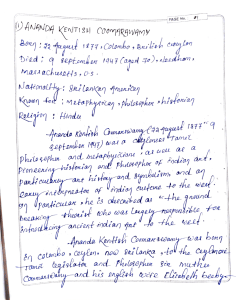 PAGE NO. #1
1) ANANDA KENTISH COOMARASWAMY
Born : 22 August 1877, Colombo, British Ceylon
Died : 9 September 1947 (aged 70), Needham,
Massachusetts, U.S.
Nationality : Srilankan American
Known for : metaphysician, Philosopher, historian
Religion : Hindu
Ananda Kentish Coomaraswamy (22 August 1877 - 9
September 1947) was a Ceylonese Tamil
Philosopher and metaphysician, as well as a
pioneering historian and Philosopher of Indian art,
Particularly art history and symbolism and an
early interpreter of Indian culture to the west.
In particular, he is described as "the ground
breaking theorist who was largely responsible for
introducing ancient Indian art to the west.
Ananda Kentish Coomaraswamy was born
in Colombo, Ceylon, now Srilanka, to the Ceylonese
Tamil legislator and Philosopher Sir Muthu
Coomaraswamy and his english wife Elizabeth Beeby